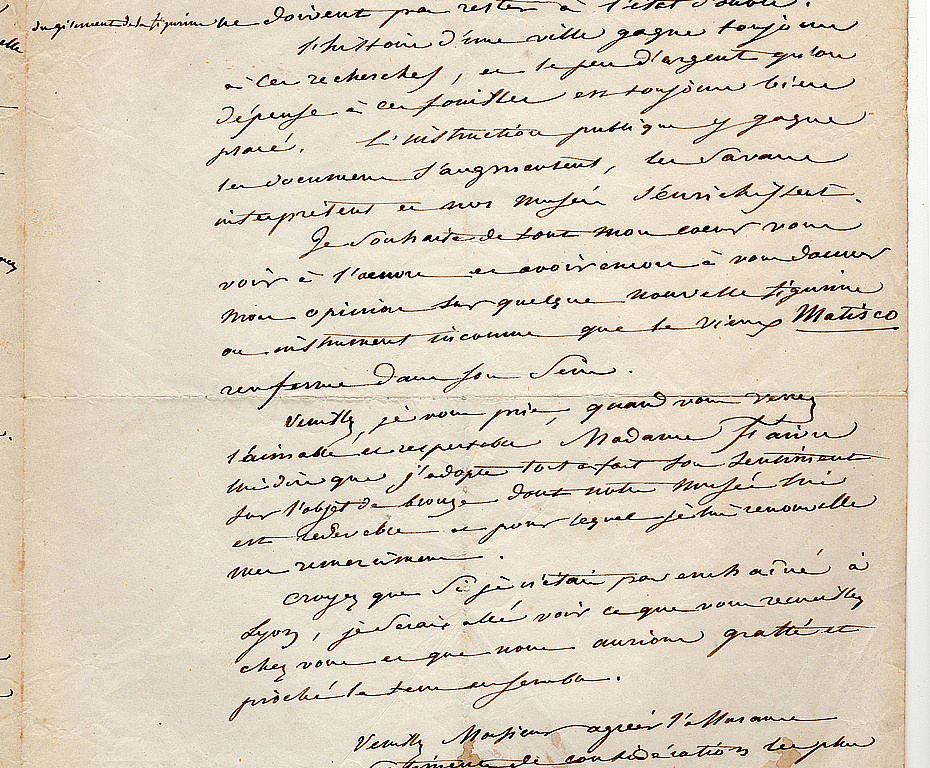 du gisement de la figurine ne doivent pas rester à l'état d'oubli.
L'histoire d'une ville gagne toujours
à ces recherches, et le peu d'argent qu'on
dépense à ces fouilles est toujours bien
placé. L'instruction publique y gagne
les documens s'augmentent, les Savans
interprètent et nos musées s'enrichissent.
Je Souhaite de tout mon coeur vous
voir à l'oeuvre et avoir encore à vous donner
mon opinion sur quelque nouvelle figurine
ou instrument inconnu que le vieux Matisco
renferme dans son Sein.
Veuillez, je vous prie, quand vous verrez
l'aimable et respectable Madame Faivre
lui dire que j'adopte tout a fait son Sentiment
sur l'objet de bronze dont notre musée lui
est redevable et pour lequel je lui renouvelle
mes remercimens.
Croyez que Si je n'étais pas enchaîné à
Lyon, je Serais allé voir ce que vous recueillez
chez vous et que nous aurions gratté et
pioché la terre ensemble.
Veuillez Monsieur agréer l'assurance
de considération les plus